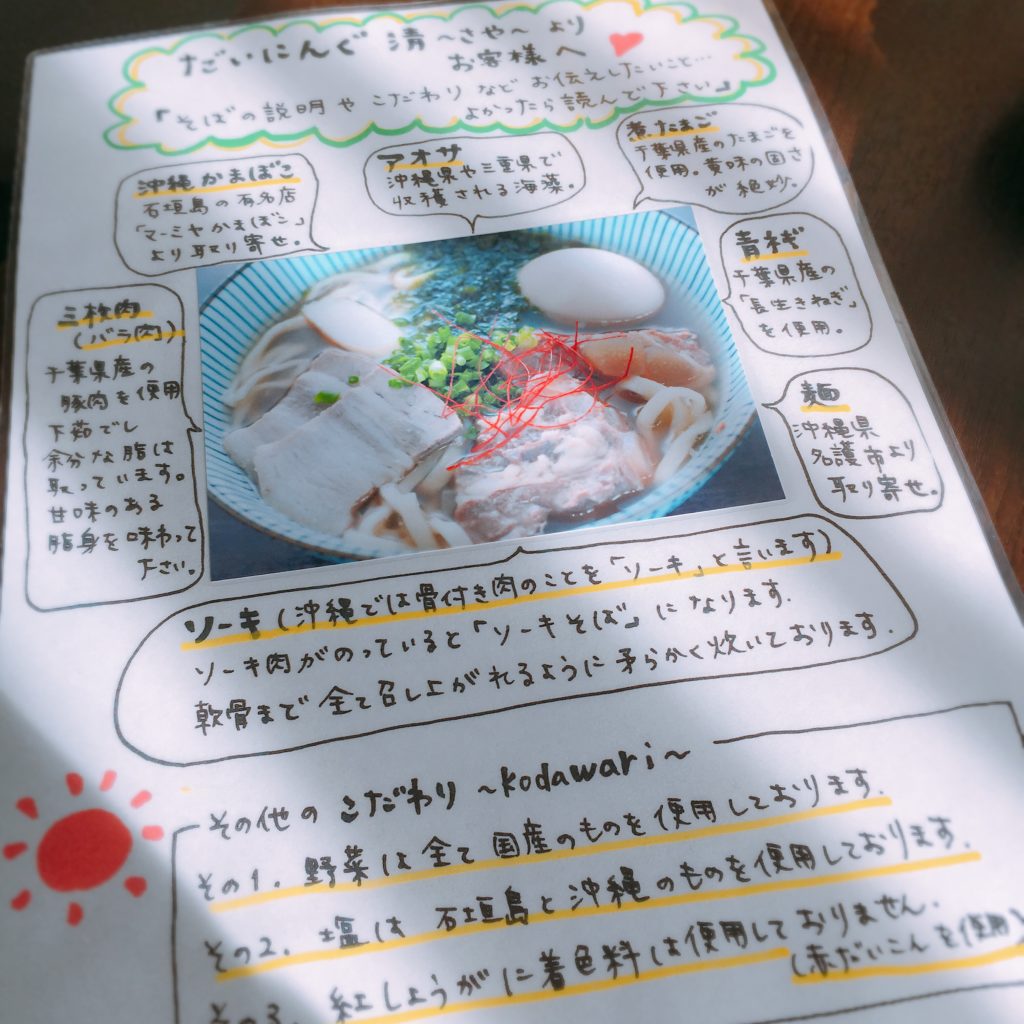 だいにんぐ 清 ～さや～ より
お客様へ
「そばの説明や こだわり など お伝えしたいこと…
よかったら読んで下さい」
沖縄かまぼこ
石垣島の有名店
「マーミヤかまぼこ」
より取り寄せ。
アオサ
沖縄県や三重県で
収穫される海藻。
煮たまご
千葉県産のたまごを
使用。黄味の固さ
が絶妙。
青ネギ
千葉県産の
「長生きねぎ」
を使用。
三枚肉
(バラ肉)
千葉県産の
豚肉を使用
下茹でし
余分な脂は
取っています。
甘味のある
脂身を味わって
下さい。
麺
沖縄県
名護市より
取り寄せ。
ソーキ(沖縄では骨付き肉のことを「ソーキ」と言います)
ソーキ肉がのっていると「ソーキそば」になります.
軟骨まで全て召し上がれるように柔らかく炊いております.
その他の こだわり ～kodawari～
その1. 野菜は全て国産のものを使用しております.
その2. 塩は 石垣島と沖縄のものを使用しております.
その3. 紅しょうがに着色料は使用しておりません.
(赤だいこんを使用)